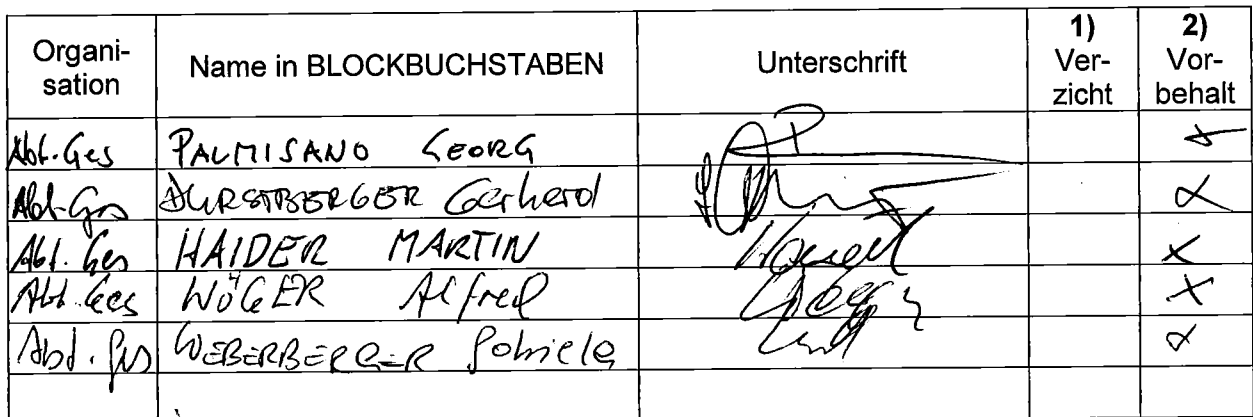 Organi-
sation
Name in BLOCKBUCHSTABEN
Unterschrift
1)
Ver-
zicht
2)
Vor-
behalt
Abt. Ges PALMISANO GEORG x
Abt. Ges DURSTBERGER Gerherd x
Abt. Ges HAIDER MARTIN x
Abt. Ges WÖGER Alfred x
Abt. Ges WEBERBERGER x